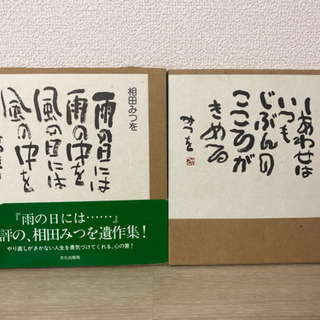 相田みつを
雨の日には
雨の中を
風の日には
風の中を
『雨の日には……』
評の、相田みつを遺作集!
やり直しがきかない人生を勇気づけてくれる、心の書!
文化出版局
しあわせは
いつも
じぶんの
こころが
きめる
みつを